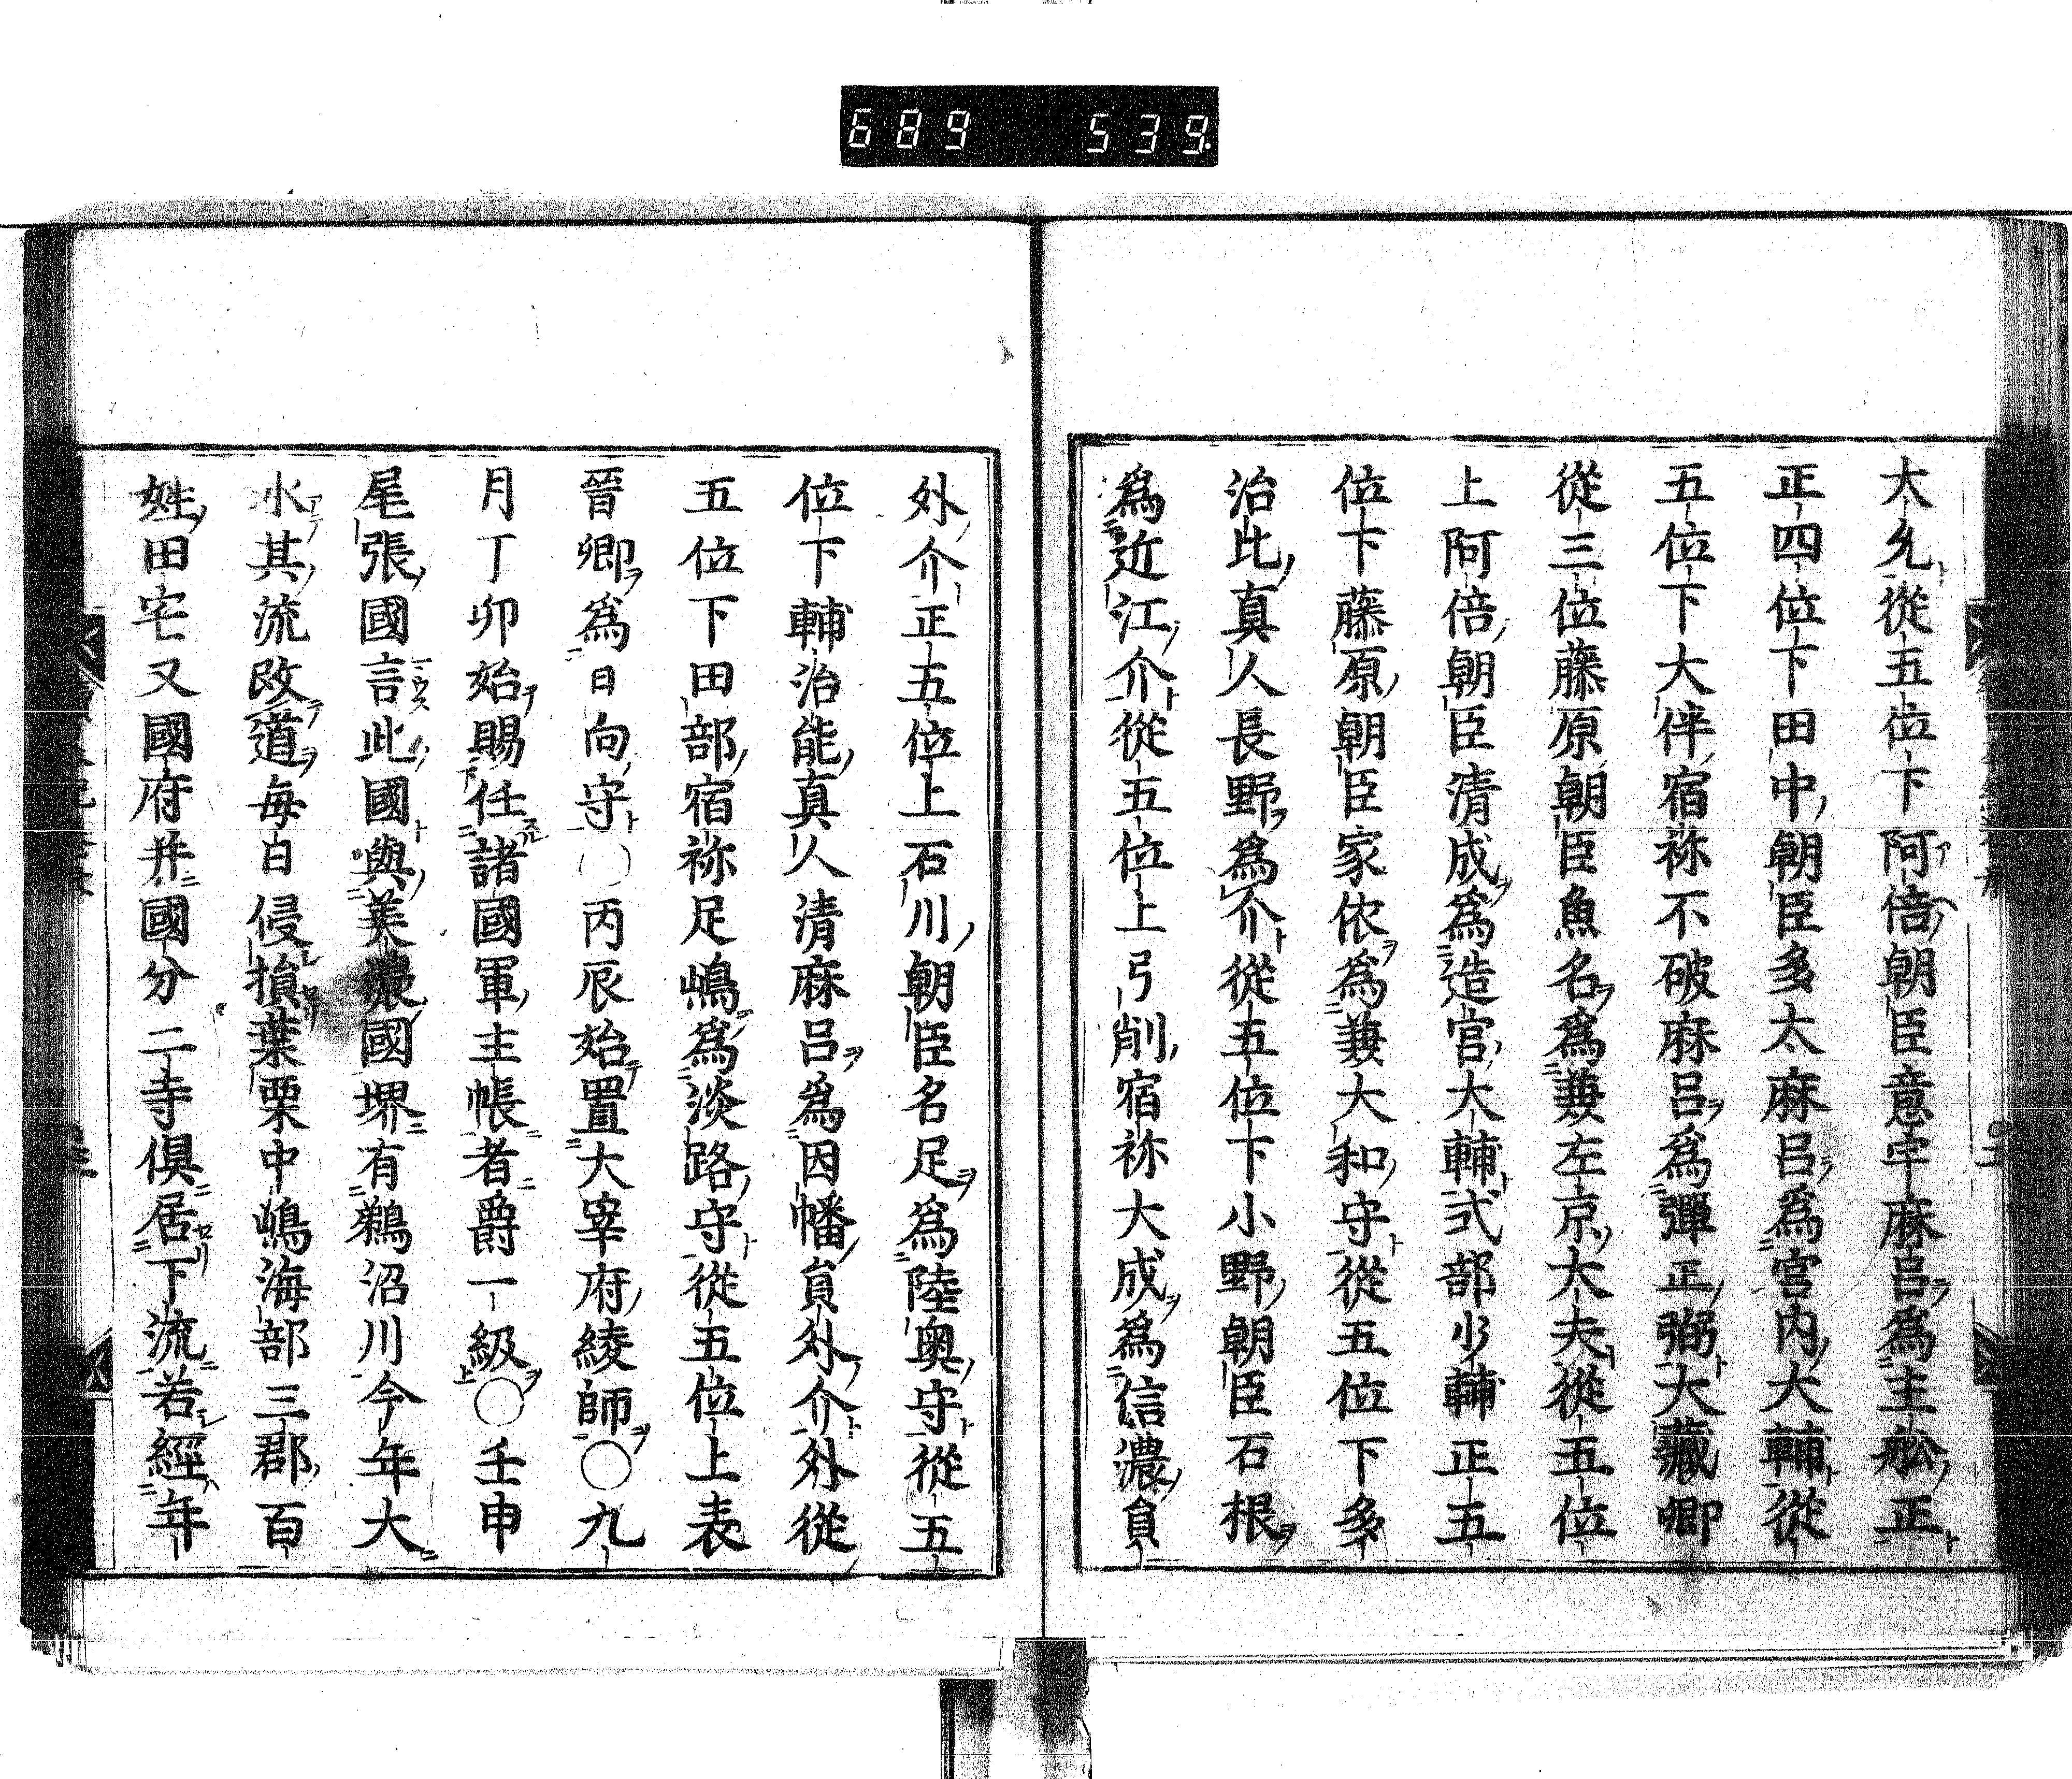 689 539
大允從五位下阿倍朝臣意宇麻呂爲主舩正
正四位下田中朝臣多太麻呂爲宮内大輔從
五位下大伴宿祢不破麻呂爲彈正弼大藏卿
從三位藤原朝臣魚名爲兼左京大夫從五位
上阿倍朝臣清成爲造宮大輔式部少輔正五
位下藤原朝臣家依爲兼大和守從五位下多
治比真人長野爲介從五位下小野朝臣石根
爲近江介從五位上弓削宿祢大成爲信濃員
外介正五位上石川朝臣名足爲陸奧守從五
位下輔治能真人清麻呂爲因幡員外介外從
五位下田部宿祢足嶋爲淡路守從五位上表
晉卿爲日向守○丙辰始置大宰府綾師○九
月丁卯始賜任諸國軍主帳者爵一級○壬申
尾張國言此國與美濃國堺有鵜沼川今年大
水其流改道每日侵損葉栗中嶋海部三郡百
姓田宅又國府并國分二寺俱居下流若經年